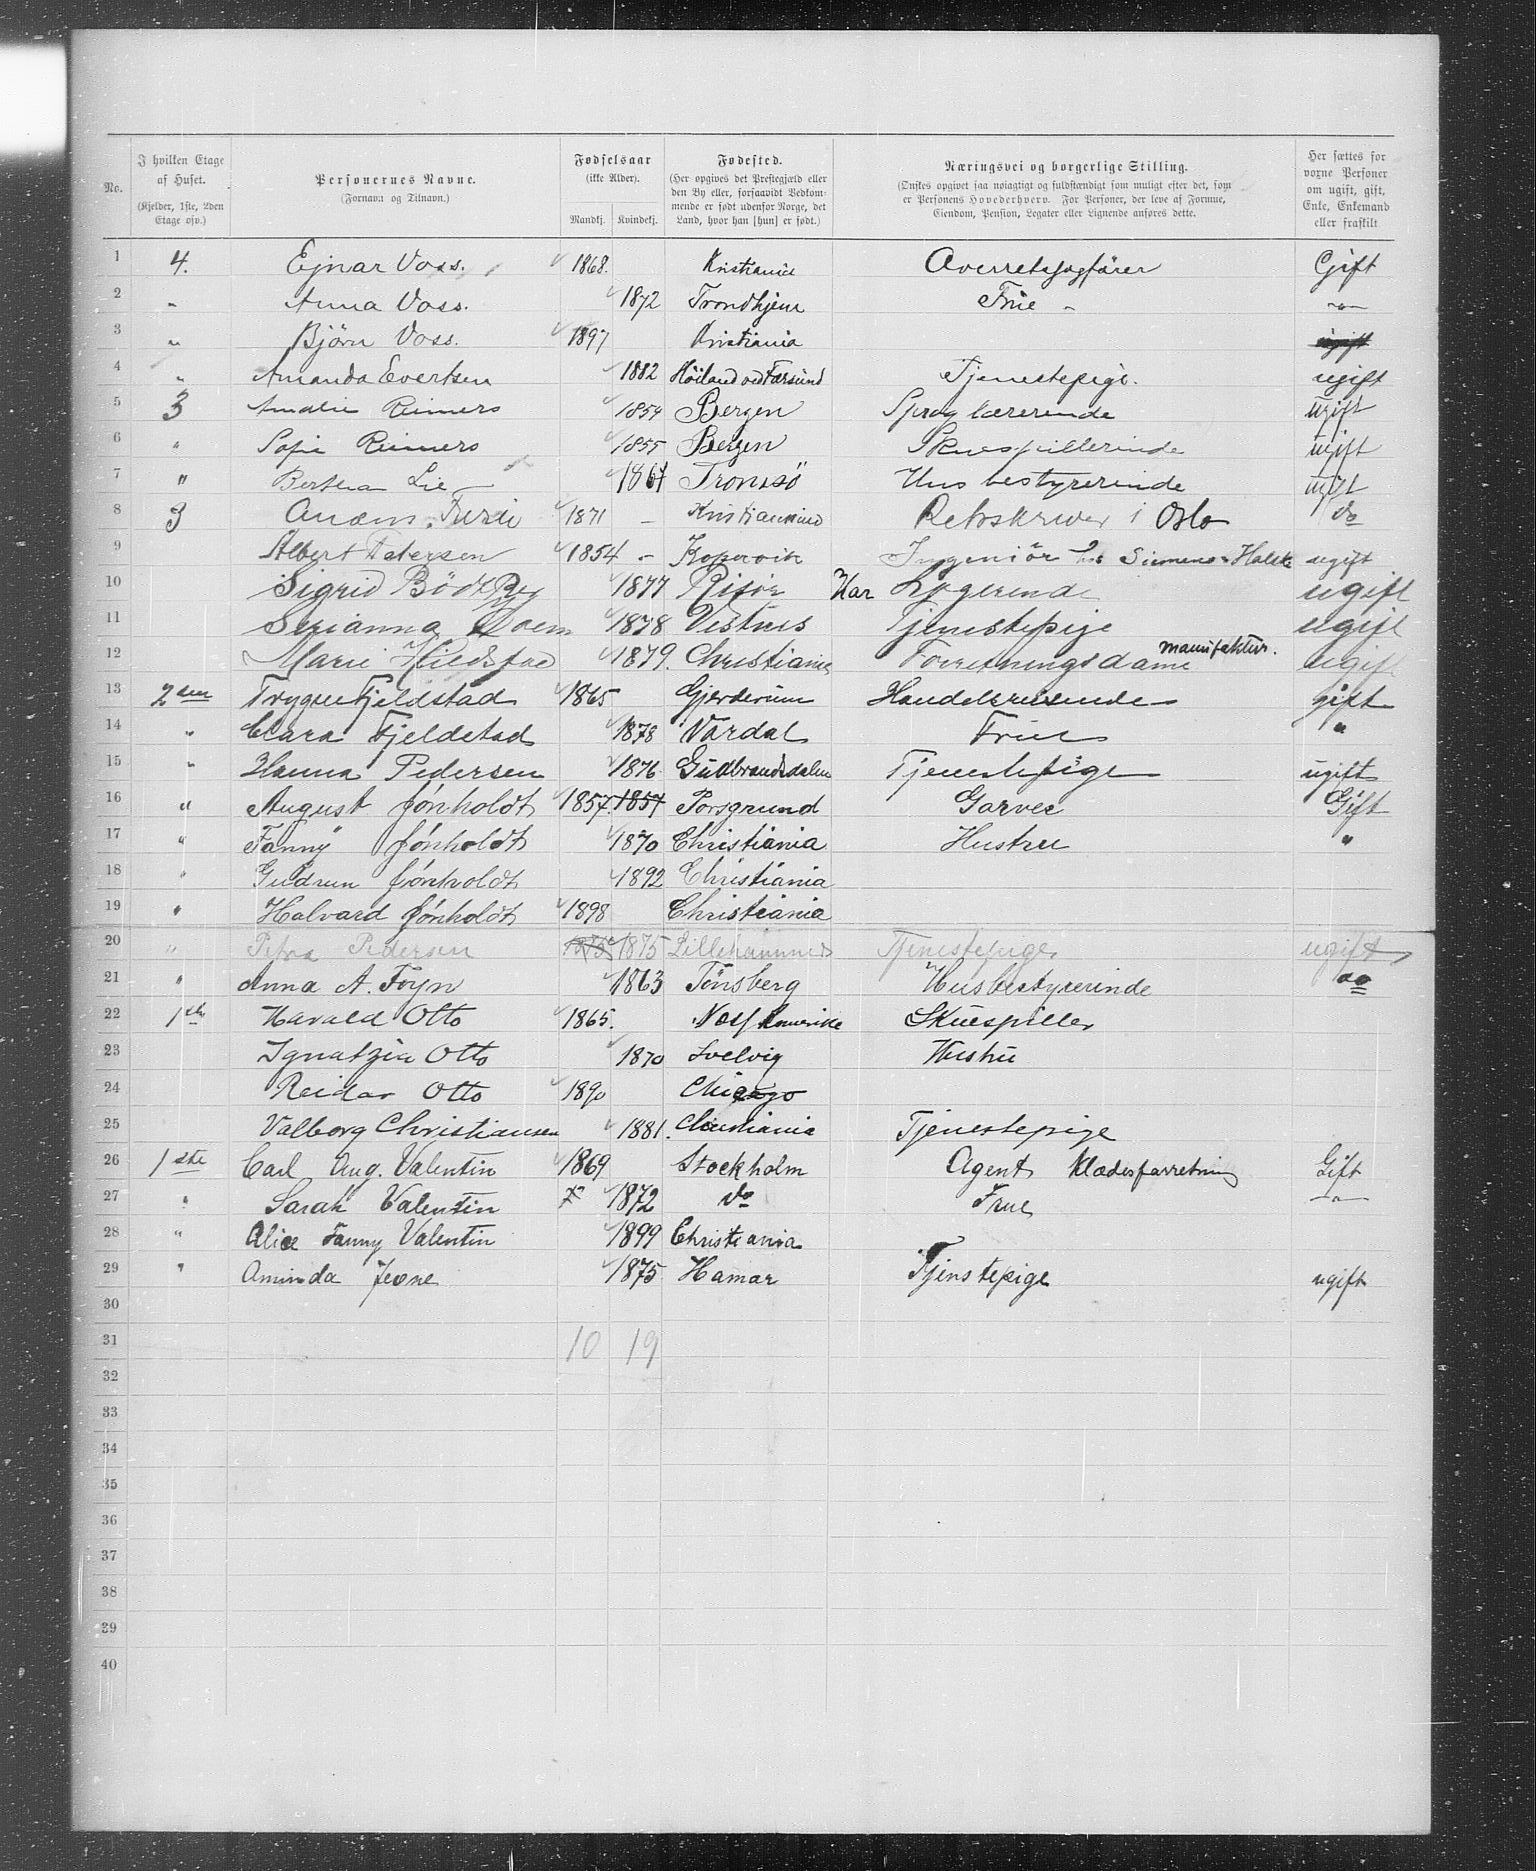 No. | I hvilken Etage af Huset. (Kjelder, 1ste, 2den Etage osv.) | Personernes Navne. (Fornavn og Tilnavn.) | Fødselsaar (ikke Alder). Mandkj. Kvindekj. | Fødested. (Her opgives det Prestegjæld eller den By eller, forsaavidt Vedkommende er født udenfor Norge, det Land, hvor han [hun] er født.) | Næringsvei og borgerlige Stilling. (Ønskes opgivet saa nøiagtigt og fuldstændigt som muligt efter det, som er Personens Hovederhverv. For Personer, der leve af Formue, Eiendom, Pension, Legater eller Lignende anføres dette. | Her sættes for voxne Personer om ugift, gift, Enke, Enkemand eller fraskilt
1 4. Ejnar Voss. 1868. Kristiania Overretssagfører Gift
2 " Anna Voss. 1872 Trondhjem Frue - -"-
3 " Bjørn Voss. 1897 Kristiania ugift
4 " Amanda Evertsen 1882 Höiland ved Farsund Tjenestepige. ugift
5 3 Amalie Reimers 1854 Bergen Sproglærerinde ugift
6 " Sofie Reimers 1855 Bergen Skuespillerinde ugift
7 " Berthea Lie 1867 Tromsö Husbestyrerinde ugift
8 3 1871 - Kristiansund i Oslo do
9 Albert Petersen 1854 - Kopervik Ingeniör hos Siemens Halske ugift
10 Sigrid 1877 Risör Har Logerende ugift
11 Serianna 1878 Vestnes Tjenestepige ugift
12 Marie 1879. Christiania Forretningsdame manufaktur. ugift
13 2den Trygve Fjeldstad 1865 Gjerderum Handelsreisende gift
14 " Clara Fjeldstad 1878 Vardal Frue "
15 " Hanna Pedersen 1876 Gudbrandsdalen Tjenestepige ugift
16 " August Jónholdt 1857. 1857 Porsgrund Garver Gift
17 " Fanny Jónholdt 1870 Christiania Hustru "
18 " Gudrun Jónholdt 1892 Christiania
19 " Halvard Jónholdt 1898 Christiania
20 " Petra Pedersen 1875 1875 Lillehammer Tjenestepige ugift
21 " Anna A. Foyn 1863 Tönsberg Husbestyrerinde do
22 1ste Harald Otto 1865. Nord Amerika Skuespiller
23 Ignatzia Otto 1870 Svelvig Hustru
24 Reidar Otto 1890 Chicago
25 Valborg Christiansen 1881. Christiania Tjenestepige
26 1ste Carl Aug. Valentin 1869 Stockholm Agent Klædesforretning Gift
27 " Sarah Valentin x 1872 do Frue -"-
28 " Alice Fanny Valentin 1899 Christiania
29 " Aminda 1875 Hamar Tjenstepige ugift
30
31 10 19
32
33
34
35
36
37
38
39
40